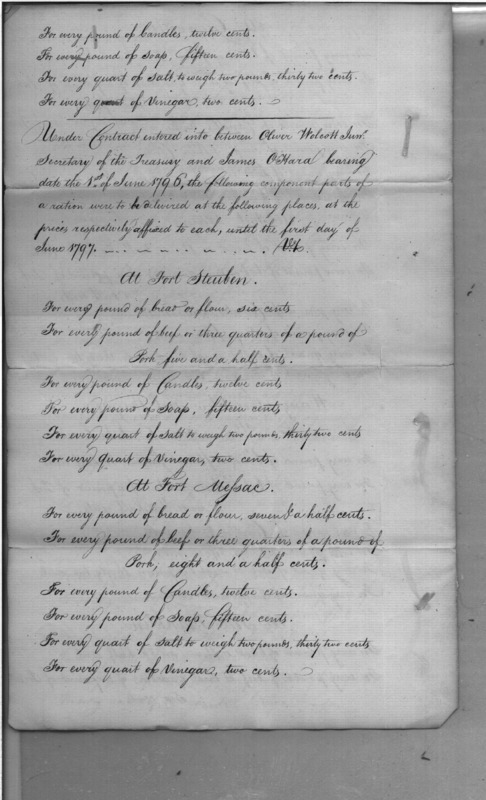 For every pound of Candles, twelve cents.
For every pound of Soap, fifteen cents.
For every quart of Salt, to weigh two pounds, thirty two cents.
For every quart of Vinegar, two cents.
Under Contract entered into between Oliver Wolcott Junr.
Secretary of the Treasury and James O'Hara bearing
date the 1st. of June 1796, the following component parts of
a ration were to be delivered at the following places, at the
prices respectively affixed to each, until the first day of
June 1797.
At Fort Steuben.
For every pound of bread or flour, six cents
For every pound of beef or three quarters of a pound of
Pork five and a half cents.
For every pound of Candles, twelve cents
For every pound of Soap, fifteen cents
For every quart of Salt to weigh two pounds, thirty two cents
For every quart of Vinegar, two cents.
At Fort Messac.
For every pound of bread or flour, seven & a half cents.
For every pound of beef or three quarters of a pound of
Pork, eight and a half cents.
For every pound of Candles, twelve cents.
For every pound of Soap, fifteen cents.
For every quart of Salt to weigh two pounds, thirty two cents
For every quart of Vinegar, two cents.